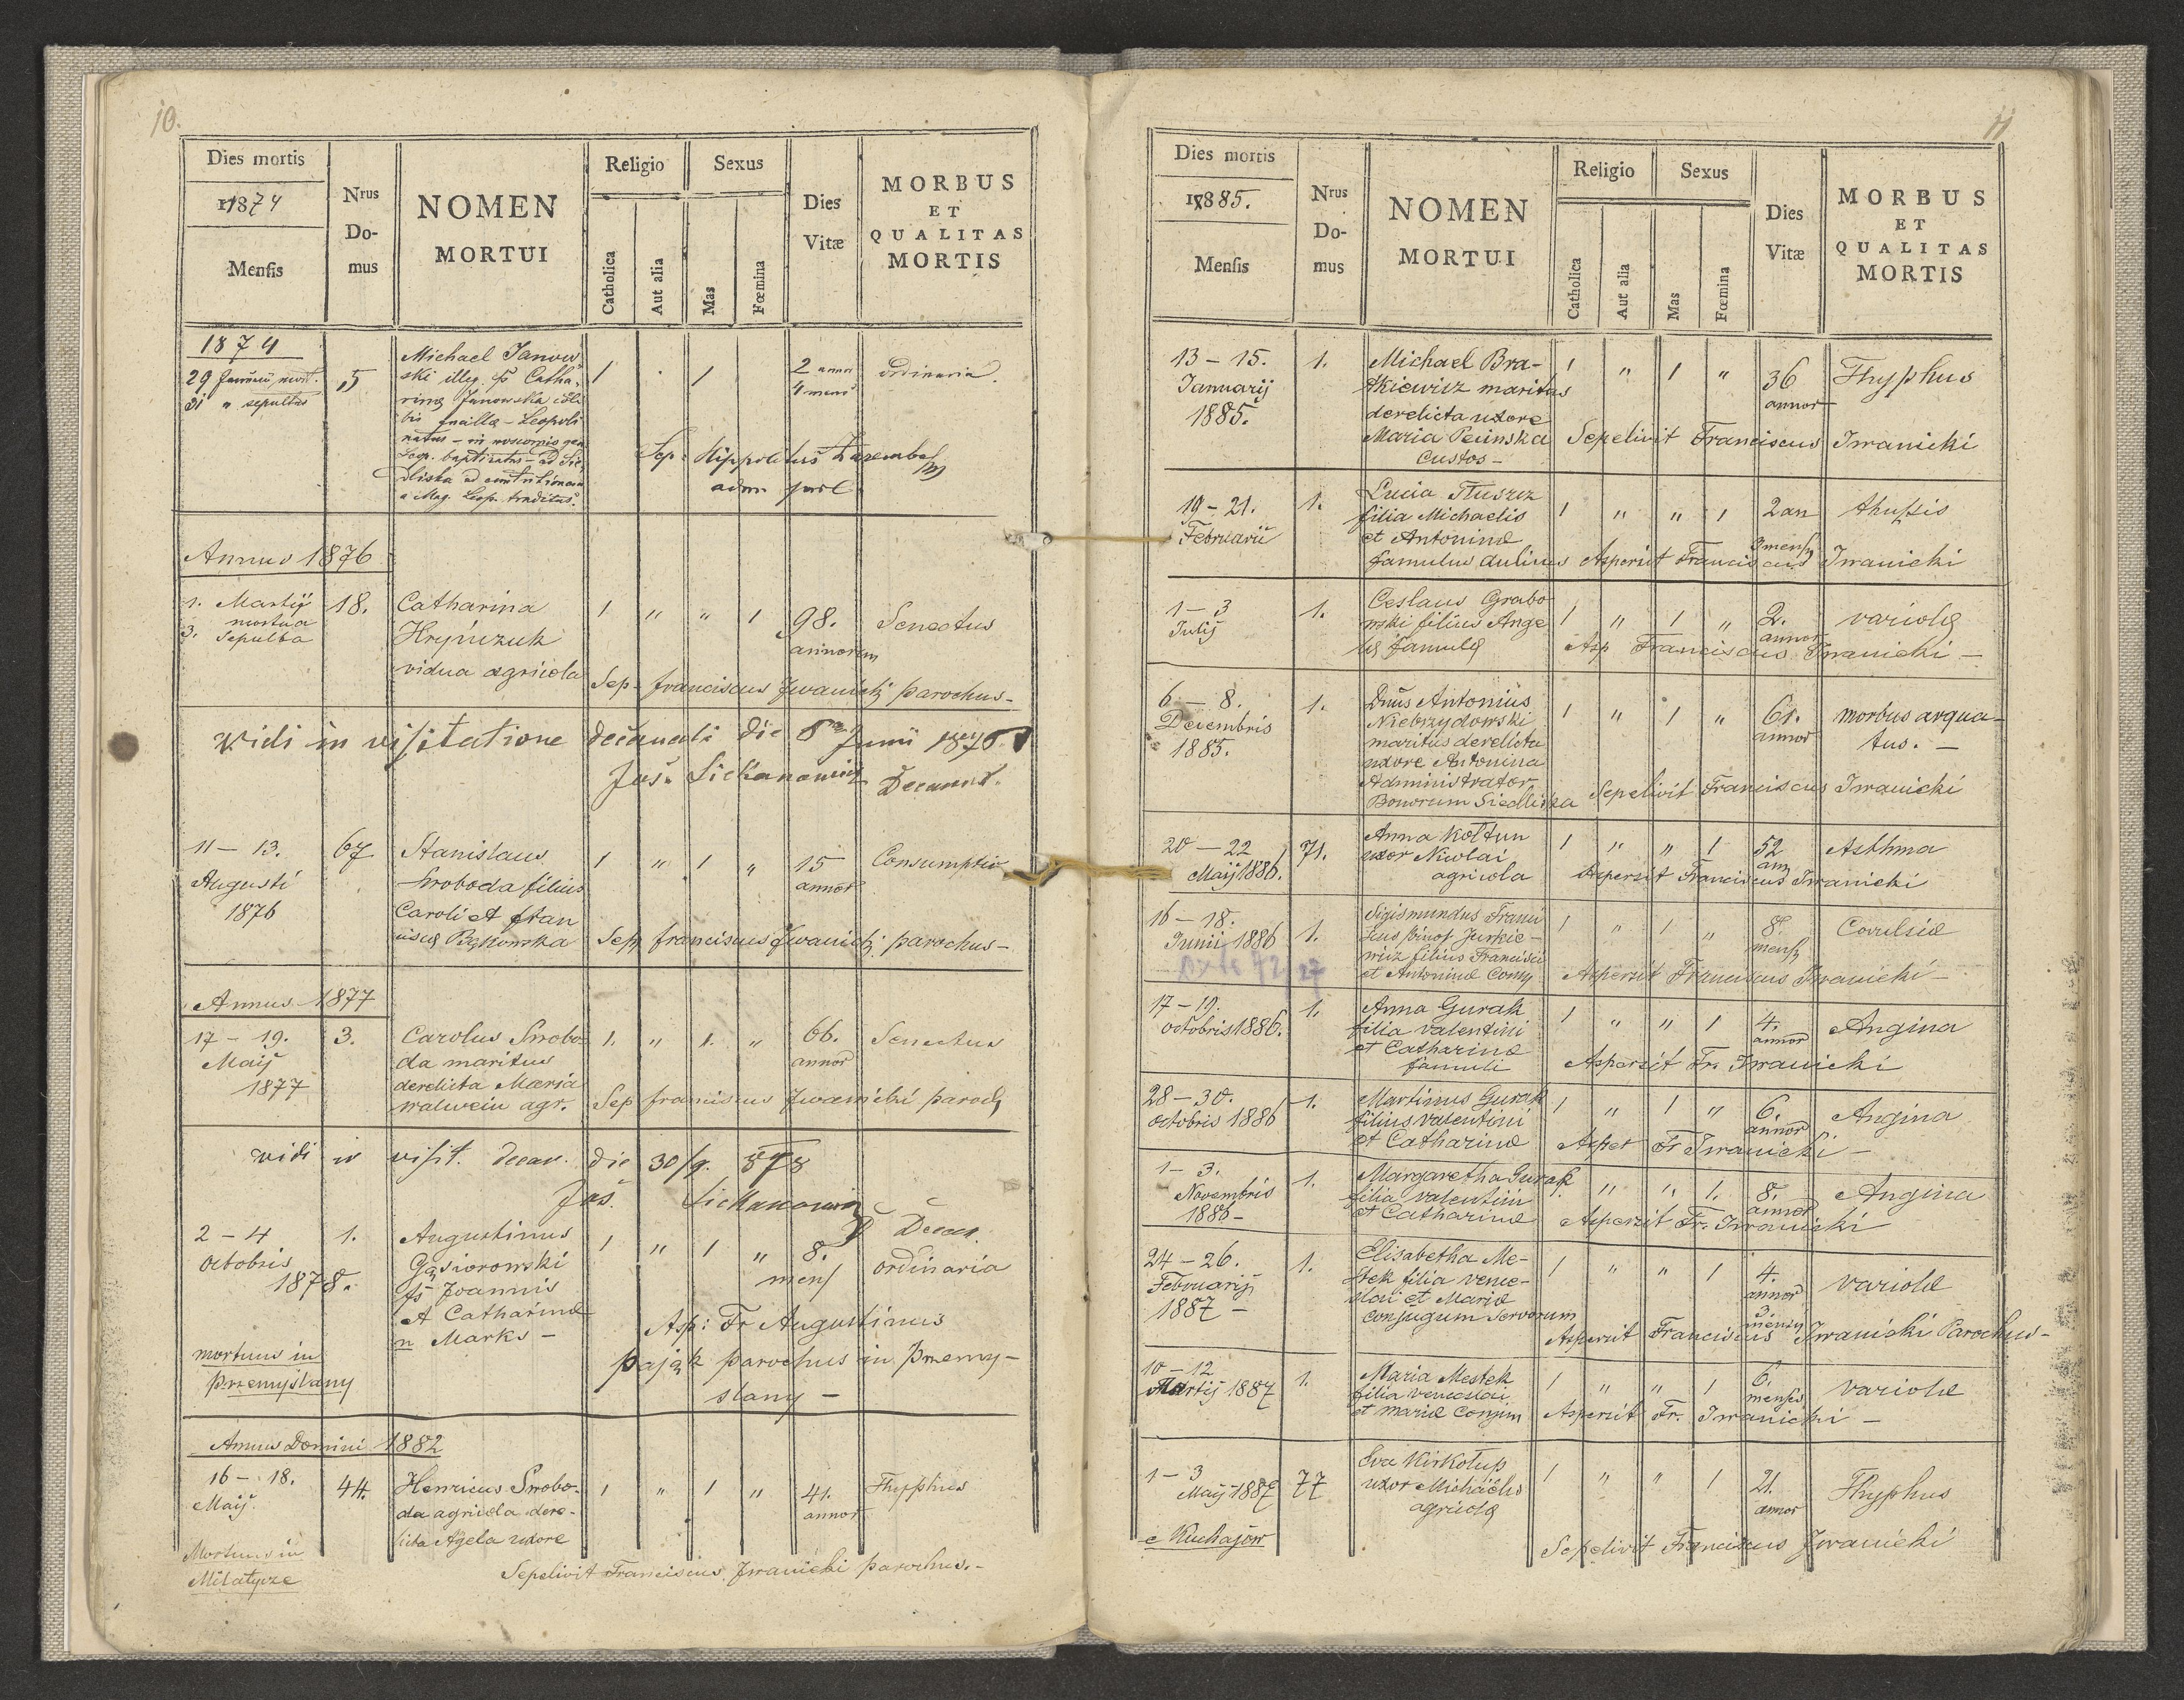 10.
Dies mortis
1874
Mensis
Nrus Do-mus
NOMEN MORTUI
Religio
Catholica
Aut alia
Sexus
Mas
Fœmina
Dies Vitæ
MORBUS ET QUALITAS MORTIS
1874
29 Januarii mort.
31 " sepultus
5
Michael Janow
ski illeg. fs Catha-
rinæ Janowska
Leopoli
natus – in
baptisatus – ad Sie-
dliska ad
a Mag. Leop. traditus.
1 . 1
2 annor
4 mens
ordinaria.
Sep. Hippolitus Zaremba
adm
Annus 1876
1. Martij
mortua
3. Sepulta
18.
Catharina
Hryńczuk
vidua agricola
1 " " 1
98.
annorum
Senectus
Sep. franciscus Jwanicki parochus-
Vidi in visitatione decanali die 8va Junii 1876
Jos. Sickanowicz Decanus.
11 – 13.
Augusti
1876
67
Stanislaus
Swoboda filius
Caroli et fran
ciscæ Bąkowska
1 " 1 "
15
annor
Consumptio
Sep. franciscus Jwanicki parochus-
Annus 1877
17 – 19.
Maij
1877
3.
Carolus Swobo-
da maritus
derelicta Maria
walwein agr.
1. " 1. "
66.
annor
Senectus
Sep franciscus Jwanicki paroch
vidi in visit. decan. die 30/9. 878
Jos. Sickanowicz
Decan.
2 – 4
Octobris
1878.
1.
Augustinus
Gąsiorowski
fs Joannis
et Catharinæ
n Marks –
1 " 1 "
8.
mens
ordinaria
Asp: Fr Augustinus
Pająk parochus in Przemy-
slany –
mortuus in
Przemyślany
Annus Domini 1882
16 – 18.
Maij.
44.
Henricus Swobo-
da agricola dere-
licta Agela uxore
1 " 1 "
41.
annor
Thyphus
Mortuus in
Milatycze
Sepelivit Franciscus Jwanicki parochus.-
11
Dies mortis
1885.
Mensis
Nrus Do-mus
NOMEN MORTUI
Religio
Catholica
Aut alia
Sexus
Mas
Fœmina
Dies Vitæ
MORBUS ET QUALITAS MORTIS
13 – 15.
Januarij
1885.
1.
Michael Bra-
tkiewicz maritus
derelicta uxore
Maria Pecinska
Custos –
1 " 1 "
36
annor
Thyphus
Sepelivit Franciscus Jwanicki
19 – 21.
Februarii
1.
Lucia Tłuszcz
filia Michaelis
et Antoninæ
famulus aulicus
1 " " 1
2 an
3 mens
thussis
Aspersit Franciscus Iwanicki
1 – 3
Julij
1.
Ceslaus Grabo
wski filius Ange
læ famulæ
1 " 1 "
2.
annor
variolæ
Asp Franciscus Iwanicki –
6 – 8.
Decembris
1885.
1.
Dnus Antonius
Niebrzydowski
maritus derelicta
uxore Antonina
Administrator
Bonorum Siedliska
1 " 1 "
61.
annor
morbus arqua-
tus. –
Sepelivit Franciscus Iwanicki
20 – 22
Maij 1886.
71.
Anna Kołtun
uxor Nicolai
agricola
1 " " 1
52
ann
Asthma
Aspersit Franciscus Iwanicki
16 – 18.
Junii 1886
1.
Sigismundus Franci
scus binof Jurkie-
wicz filius Francisci
et Antoninæ Conj
1 " 1 "
8.
mens
Covulsiæ
Aspersit Franciscus Iwanicki –
17 – 19.
octobris 1886.
1.
Anna Gurak
filia Valentini
et Catharinæ
famuli
1 " " 1
4.
annor
Angina
Aspersit Fr. Iwanicki
28 – 30.
octobris 1886
1.
Martinus Gurak
filius Valentini
et Catharinæ
1 " 1 "
6.
annor
Angina
Asper Fr Iwanicki –
1 – 3.
Novembris
1886 –
1.
Margaretha Gurak
filia Valentini
et Catharinæ
" " 1.
8.
annor
Angina
Aspersit Fr. Iwanicki
24 – 26.
Februarij
1887 –
1.
Elisabetha Me-
stek filia vence-
slai et Mariæ
conjugum Servorum
1 " " 1
4.
annor
3.
mensy
variolæ
Aspersit Franciscus Iwanicki Parochus-
10 – 12
Martij 1887
1.
Maria Mestek
filia venceslai
et mariæ Conjum
1 " " 1
6.
menses
variolæ
Aspersit Fr. Iwanicki –
1 – 3
Maij 1887
77
Eva Kirkołup
uxor Michaelis
agricolæ
1 " " 1
21.
annor
Thyphus
e Kuchajow
Sepelivit Franciscus Jwanicki